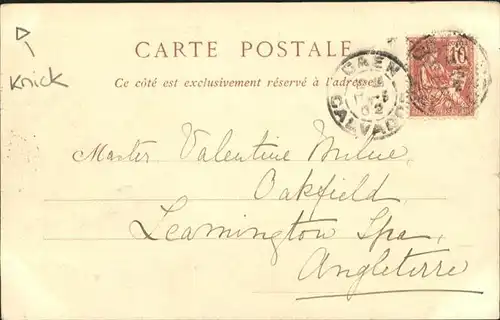 CARTE POSTALE
Ce côté est exclusivement réservé à l'adresse
Knick
CAEN
CALVADOS
Master Valentine Milne,
Oakfield,
Leamington Spa,
Angleterre